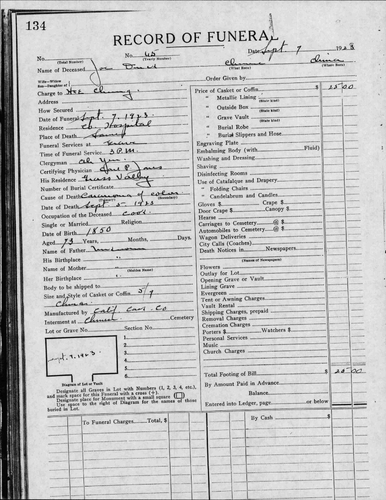 134
RECORD OF FUNERAL
No. No. 45 Date Sept. 9 1928
(Total Number) (Yearly Number) (What Race) (Where Born)
Name of Deceased
Wife—Widow Order Given by
Son—Daughter of
Charge to
Address
How Secured
Date of Funeral Sept. 7. 1923
Residence Co. Hospital
Place of Death Same
Funeral Services at Grave
Time of Funeral Service 3 P.M.
Clergyman
Certifying Physician
His Residence Grass Valley
Number of Burial Certificate
Cause of Death
Date of Death Sept 5 1923
Occupation of the Deceased Cook
Single or Married Religion
Date of Birth 1850
Aged 73 Years, Months, Days
Name of Father Unknown
His Birthplace "
Name of Mother "
Her Birthplace "
Body to be shipped to
Size and Style of Casket or Coffin 5/9
Manufactured by Calif Cas. Co
Interment at Chinese Cemetery
Lot or Grave No. Section No.
Sept. 7. 1923
1
2
3
4
5
6
7
Diagram of Lot or Vault
Designate all Graves in Lot with Numbers (1, 2, 3, 4, etc.),
and mark space for this Funeral with a cross (+).
Designate place for Monument with a small square
Use space to right of Diagram for the names of those
buried in Lot.
To Funeral Charges Total, $
Price of Casket or Coffin $ 25 00
" Metallic Lining
" Outside Box
" Grave Vault
" Burial Robe
" Burial Slippers and Hose
Engraving Plate
Embalming Body (with Fluid)
Washing and Dressing
Shaving
Disinfecting Rooms
Use of Catafalque and Drapery
" Folding Chairs
" Candelabrum and Candles
Gloves $ Crape $
Door Crape $ Canopy $
Hearse
Carriages to Cemetery @ $
Automobiles to Cemetery @ $
Wagon Deliveries
City Calls (Coaches)
Death Notices in Newspapers
(Names of Newspapers)
Flowers
Outlay for Lot
Opening Grave or Vault
Lining Grave
Evergreen
Tent or Awning Charges
Vault Rental
Shipping Charges, prepaid
Removal Charges
Cremation Charges
Porters $ Watchers $
Personal Services
Music
Church Charges
Total Footing of Bill $ 25 00
By Amount Paid in Advance
Balance
Entered into Ledger, page or below.
By Cash $